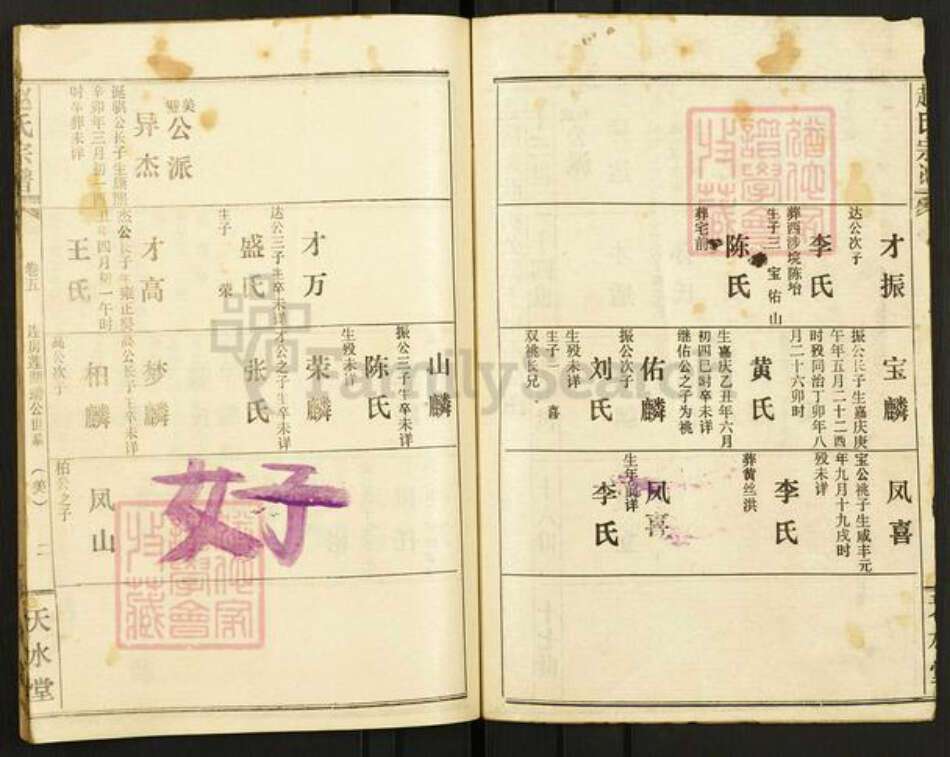 赵氏宗谱
才振
达公次子
李氏
葬西涉境陈坮
生子三 宝佑山
陈氏
葬宅前
宝麟
振公长子生嘉庆庚
午年五月二十二四
时殁同治丁卯年八
月二十六卯时
黄氏
生嘉庆乙丑年六月
初四巳时卒未详
继佑公之子为祧
佑麟
振公次子
刘氏
生殁未详
生子一 喜
双祧长兄
凤喜
宝公祧子生咸丰元
年九月十九戌时
殁未详
李氏
葬黄丝洪
凤喜
生年 详
李氏
美
公派
异杰
挺骐公长子生康熙
辛卯年三月初一酉
时卒葬未详
才万
达公三子生卒未详
盛氏
生子一 荣
才高
杰公长子生雍正癸
丑年四月初一午时
王氏
山麟
振公三子生卒未详
陈氏
生殁未
荣麟
才公之子生卒未详
张氏
梦麟
高公长子生卒未详
柏麟
高公次子
凤山
柏公之子
好
赵氏宗谱
卷五
(美)
二
天水堂
FamilySearch